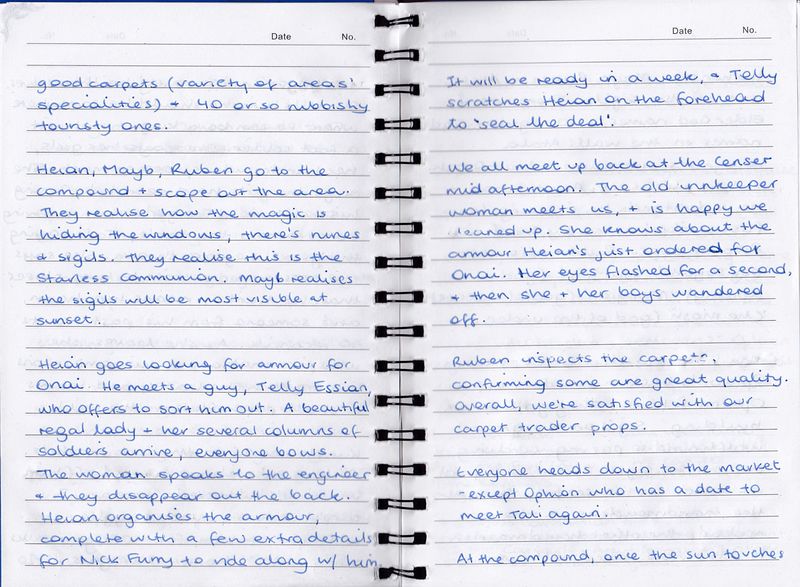 Date No.
good carpets (variety of areas'
specialities) + 40 or so rubbishy
touristy ones.
Heian, Mayb, Ruben go to the
compound + scope out the area.
They realise how the magic is
hiding the windows, there's runes
+ sigils. They realise this is the
Starless Communion. Mayb realises
the sigils will be most visible at
sunset.
Heian goes looking for armour for
Onai. He meets a guy, Telly Essian,
who offers to sort him out. A beautiful
regal lady + her several columns of
soldiers arrive, everyone bows.
The woman speaks to the engineer
+ they disappear out the back.
Heian organises the armour,
complete with a few extra details
for Nick Furry to ride along w/ him.
Date No.
It will be ready in a week, + Telly
scratches Heian on the forehead
to 'seal the deal'.
We all meet up back at the Censer
mid afternoon. The old innkeeper
woman meets us, + is happy we
cleaned up. She knows about the
armour Heian's just ordered for
Onai. Her eyes flashed for a second,
+ then she + her boys wandered
off.
Ruben inspects the carpets,
confirming some are great quality.
Overall, we're satisfied with our
carpet trader props.
Everyone heads down to the market
- except Ophion who has a date to
meet Tali again.
At the compound, once the sun touches